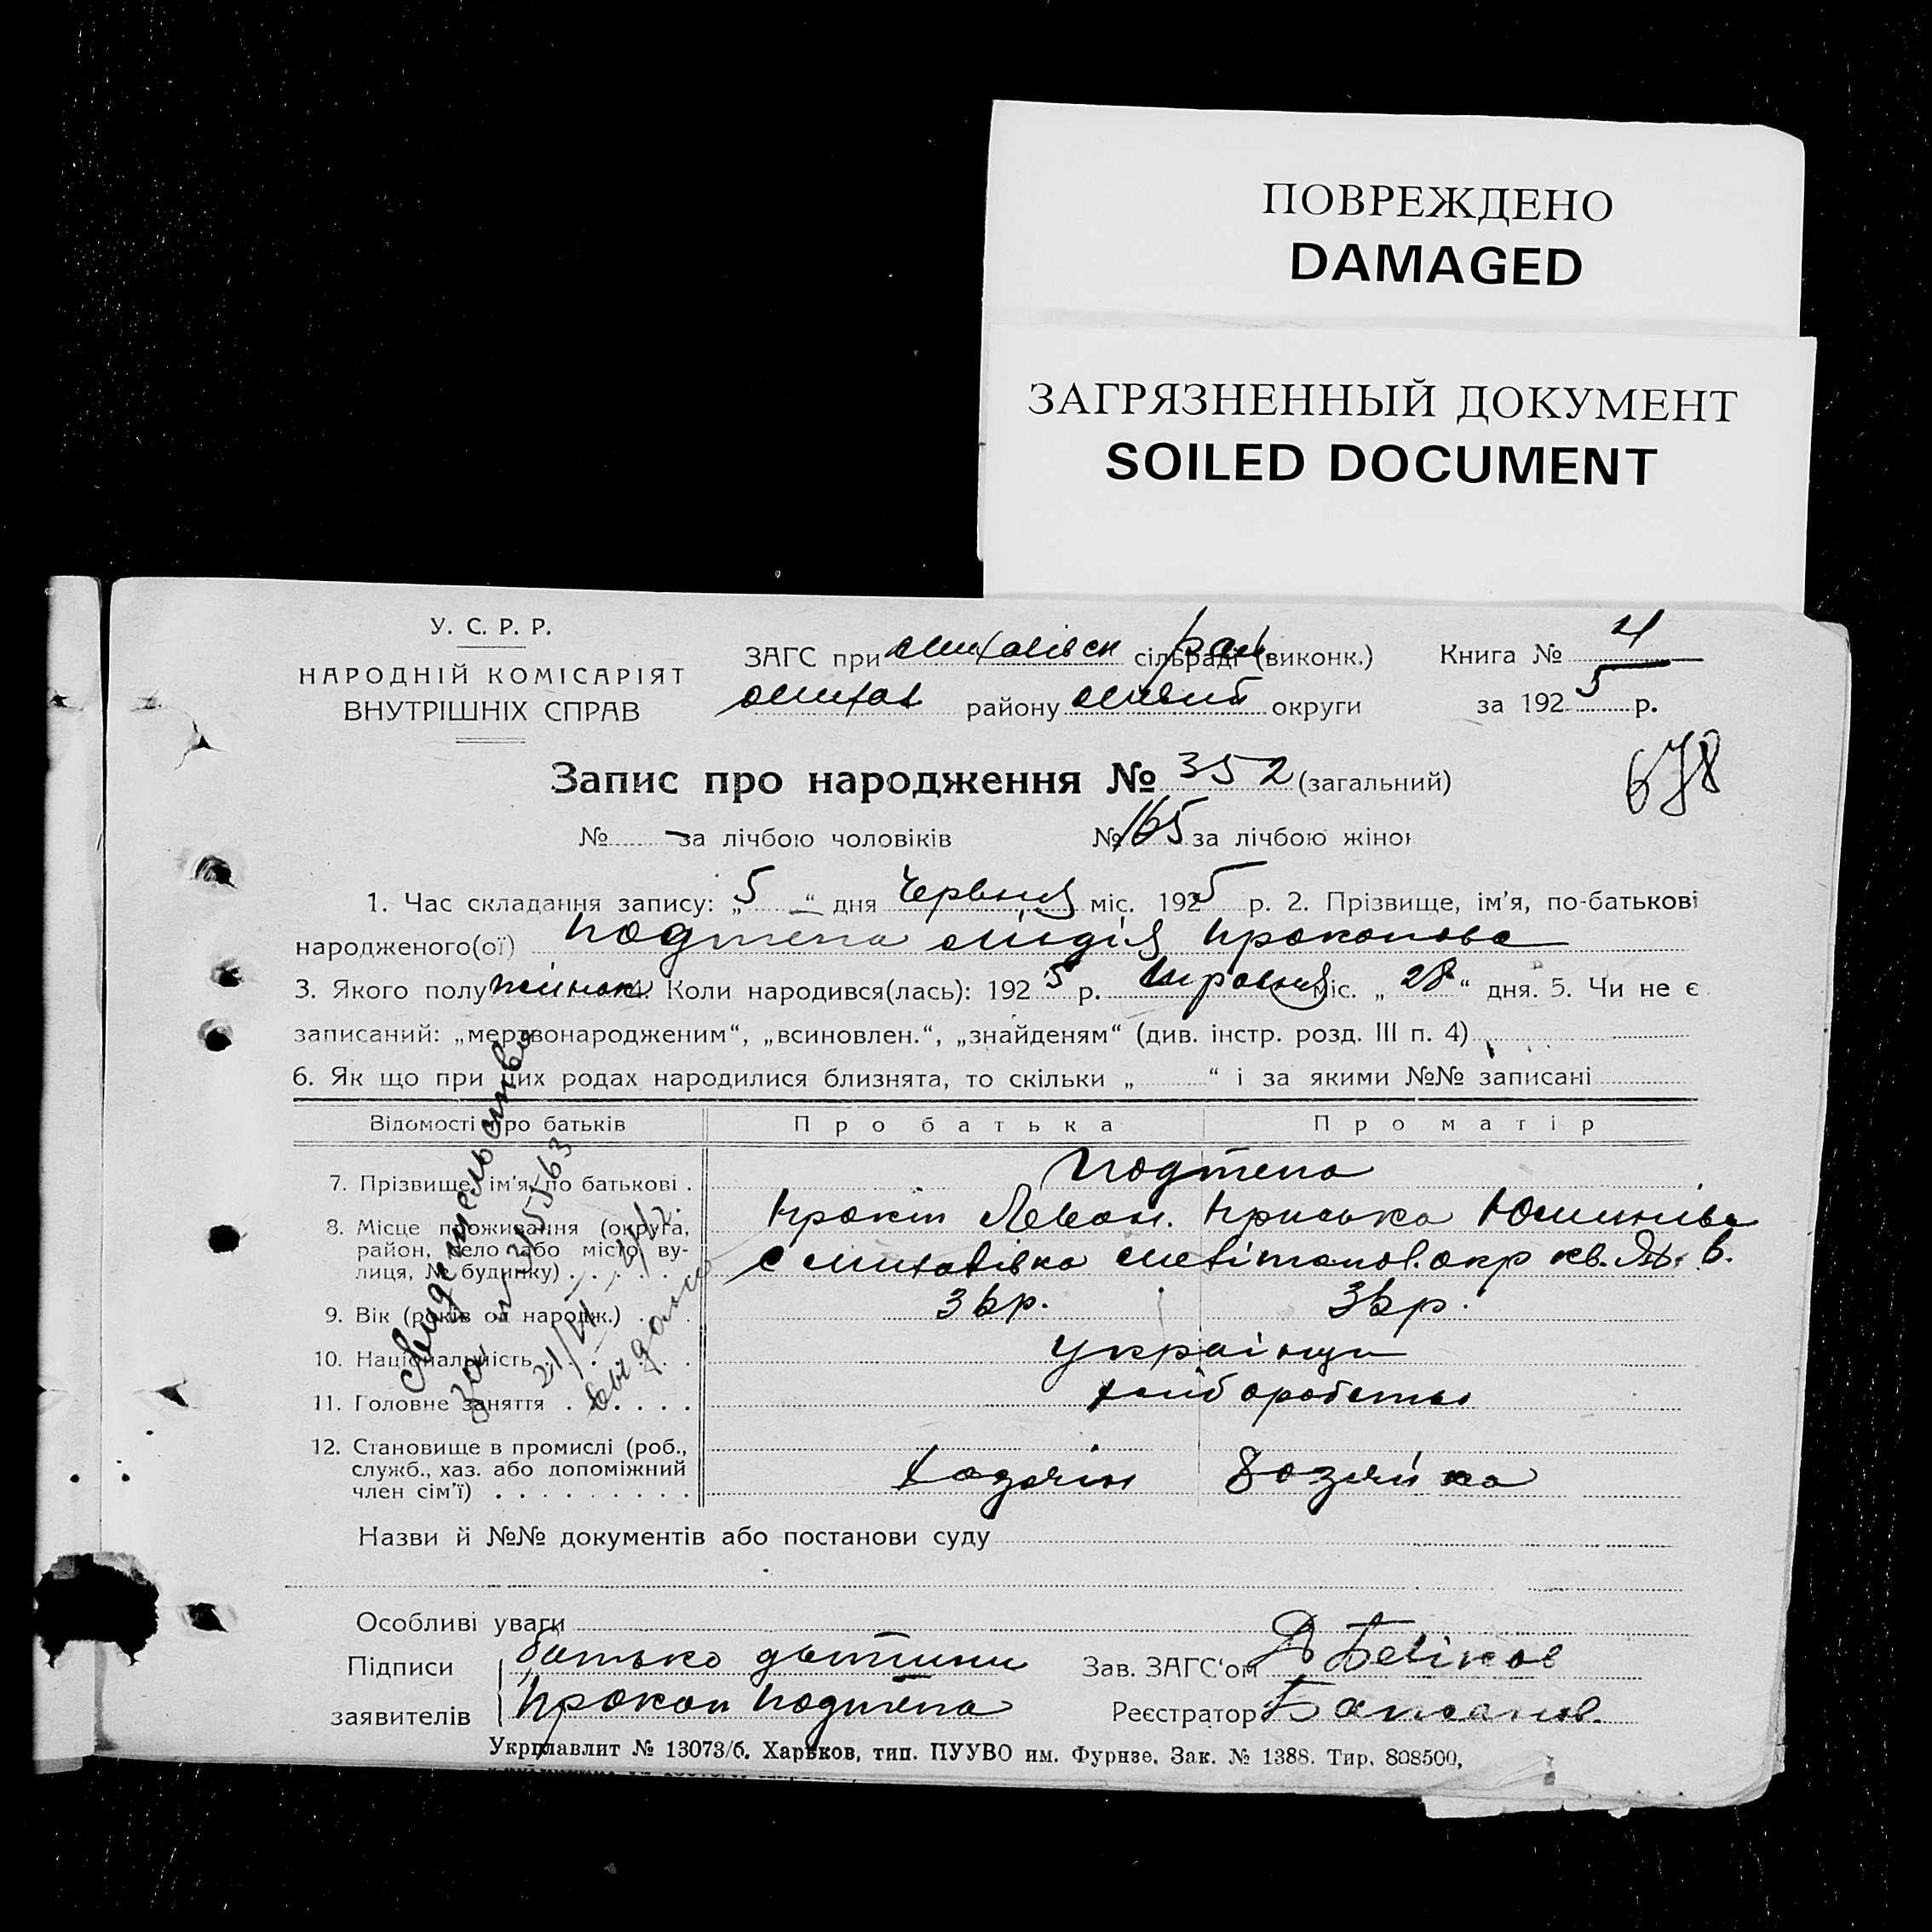 ПОВРЕЖДЕНО
DAMAGED
ЗАГРЯЗНЕННЫЙ ДОКУМЕНТ
SOILED DOCUMENT
У. С. Р. Р.
НАРОДНІЙ КОМІСАРІЯТ
ВНУТРІШНІХ СПРАВ
ЗАГС при сільраді (виконк.)
району округи
Книга № 4
за 1925 р.
678
Запис про народження № 352 (загальний)
№ — за лічбою чоловіків № 165 за лічбою жінок
1. Час складання запису: „5“ дня Червня міс. 1925 р. 2. Прізвище, ім'я, по-батькові
народженого(ої) Подтепа Лідія Прокопова
3. Якого полу жіноч. Коли народився(лась): 1925 р. міс. „28“ дня. 5. Чи не є
записаний: „мертвонародженим“, „всиновлен.“, „знайденям“ (див. інстр. розд. III п. 4)
6. Як що при цих родах народилися близнята, то скільки „ “ і за якими №№ записані
Відомості про батьків Про батька Про матір
7. Прізвище, ім'я, по батькові . Подтепа
Прокіп Явсан. Приська Юхимівна
8. Місце проживання (округа,
район, село або місто, ву-
лиця, № будинку) с Михайлівка Мелітопол. окр
9. Вік (років од народж.) 36р. 36р.
10. Національність українці
11. Головне заняття хліборобство
12. Становище в промислі (роб.,
служб., хаз. або допоміжний
член сім'ї) хазяїн хазяйка
Свидетельство
за № 315563
выдано
Назви й №№ документів або постанови суду
Особливі уваги
Підписи батько дитини Зав. ЗАГС'ом
заявителів Прокоп Подтепа Реєстратор
Укрглавлит № 13073/б. Харьков, тип. ПУУВО им. Фурнзе. Зак. № 1388. Тир. 808500,